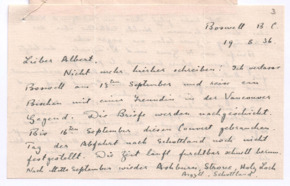 3
Boswell B.C.
19. 8. 36.
Lieber Albert.
Nicht mehr hierher schreiben! Ich verlasse
Boswell am 13ten September und reise ein
Bischen mit einer Freundin in der Vancouver
Gegend. Die Briefe werden nachgeschickt.
Bis 16ten September diesen Couvert gebrauchen.
Tag der Abfahrt nach Schottland noch nicht
festgestellt. Die Zeit läuft furchtbar schnell herum
Nach Mitte September wieder Ashburn, Strone, Holy Loch
Argyll. Schottland.